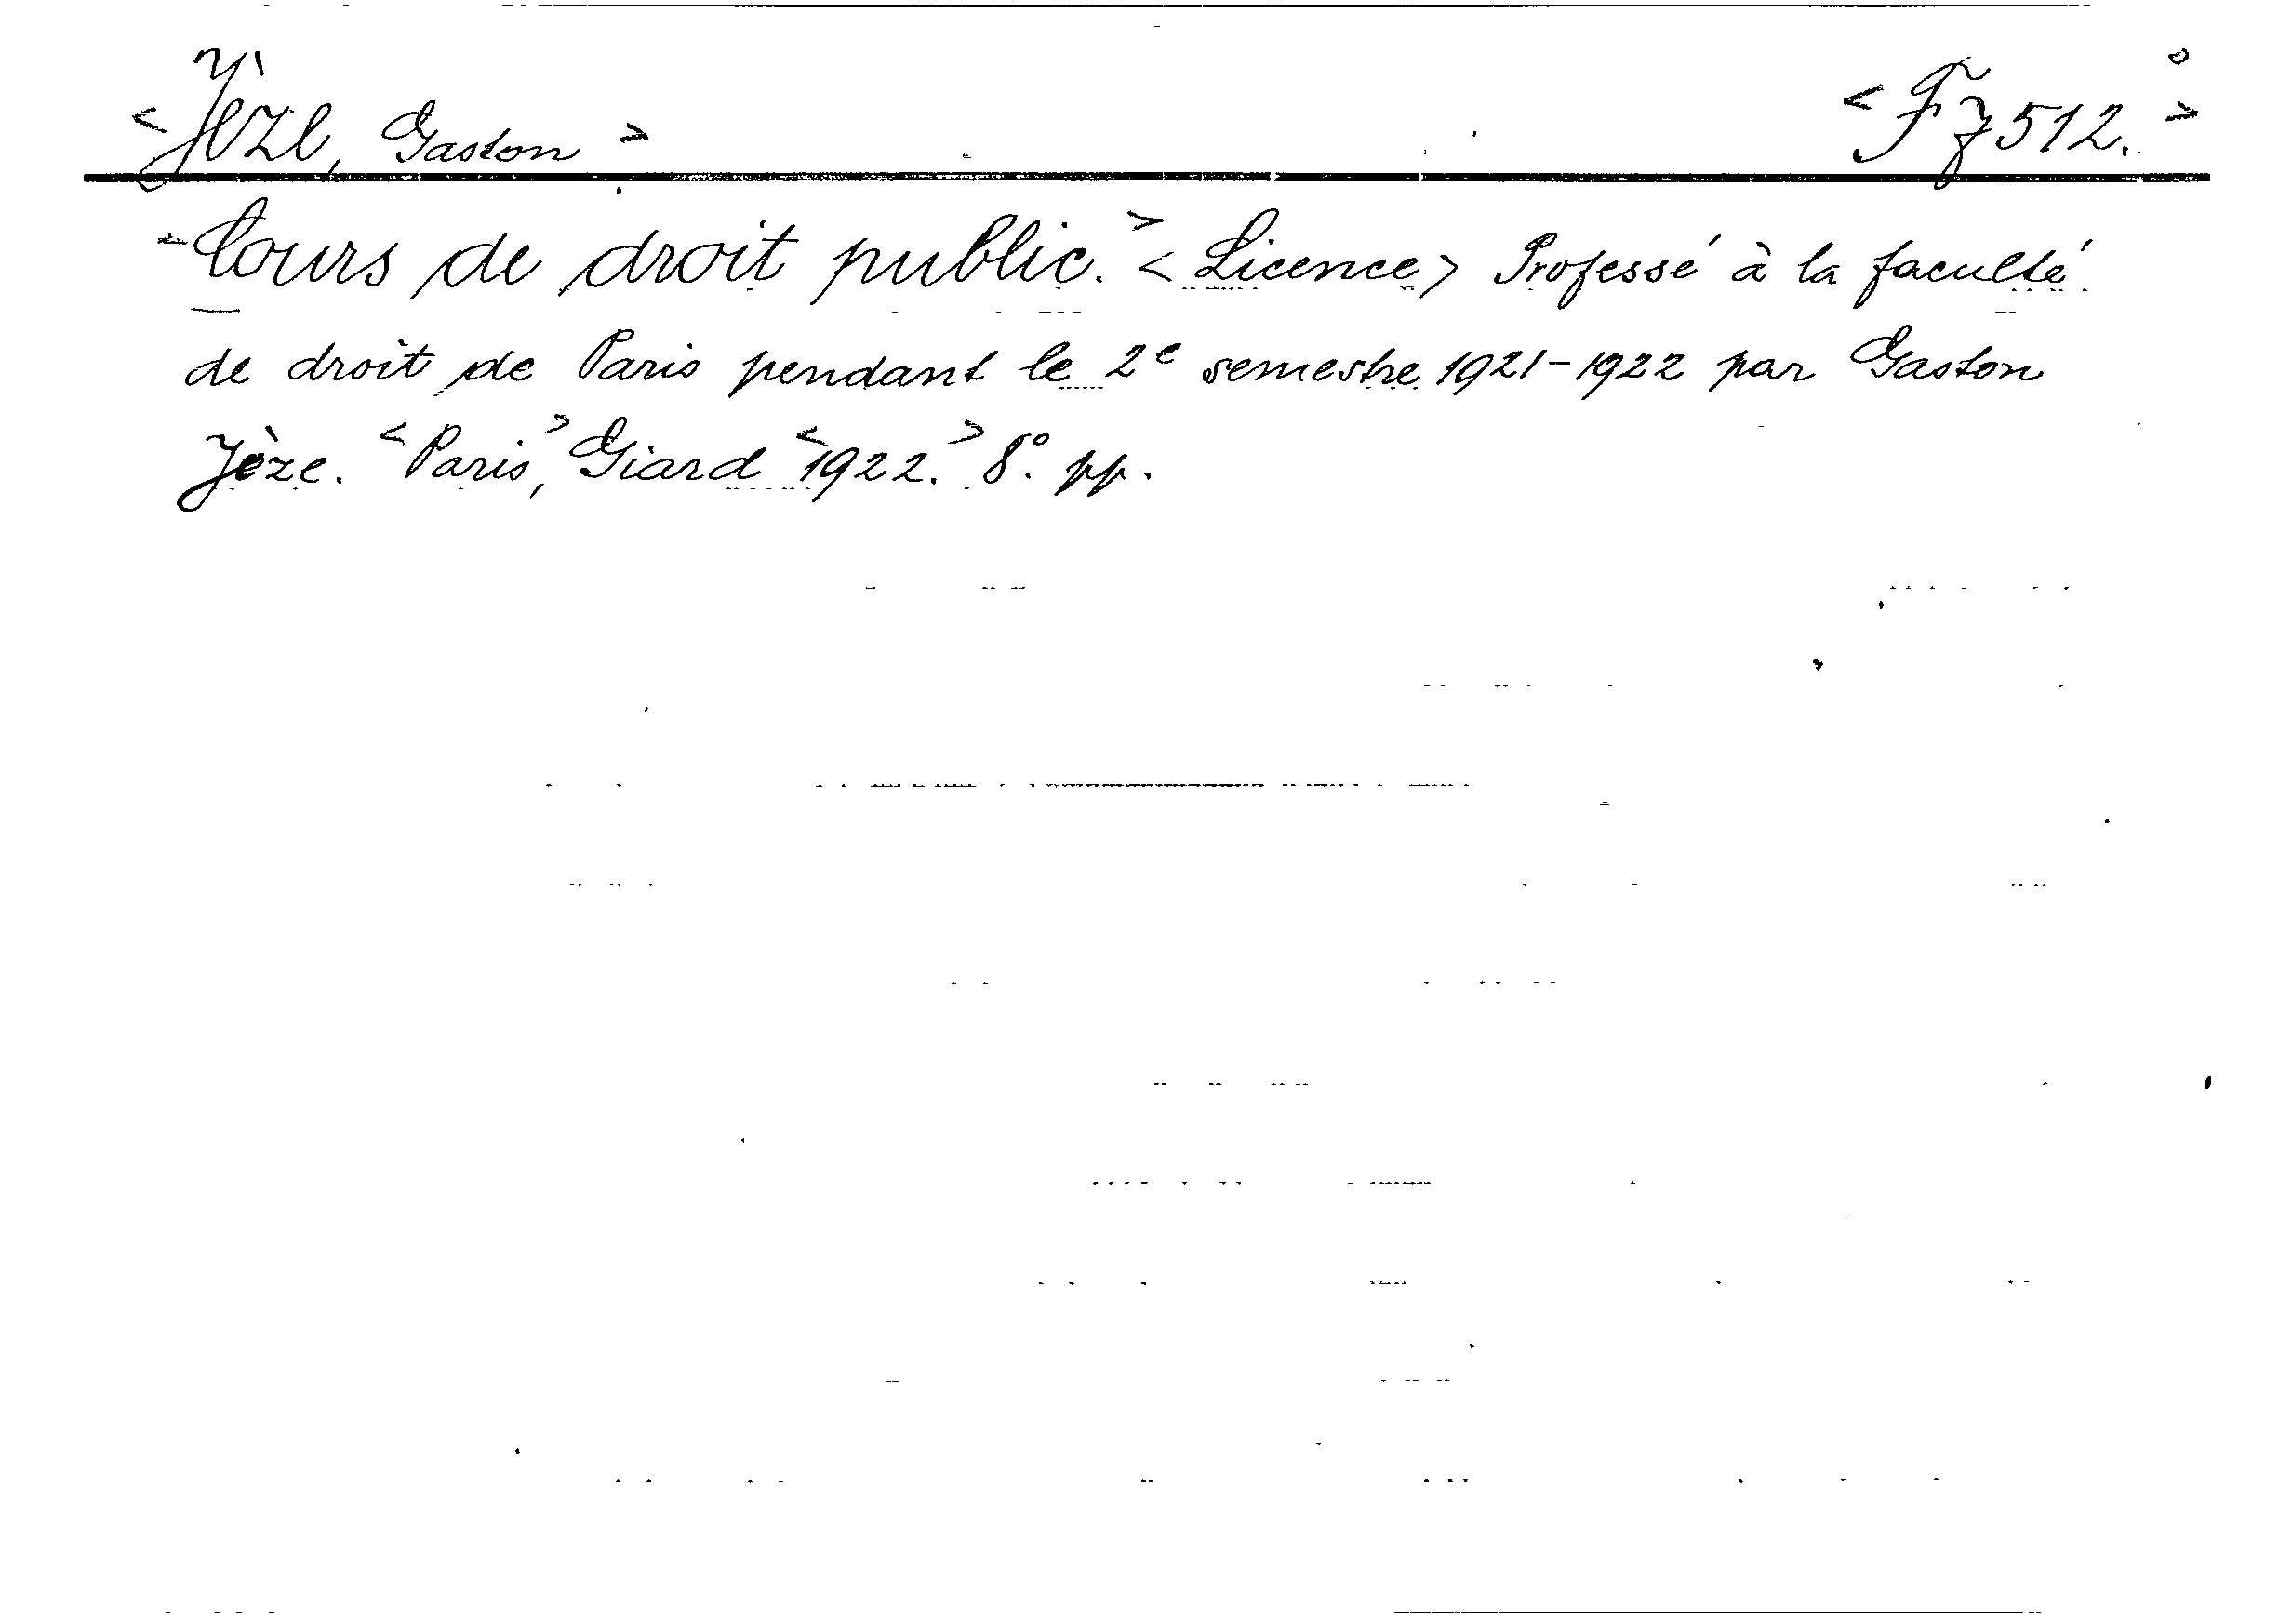 <Jèze, Gaston> <F z 512.°>
<Cours de droit public.> <Licence> Professé à la faculté
de droit de Paris pendant le 2e semestre 1921-1922 par Gaston
Jèze. <Paris,> Giard <1922.> 8°. pp.